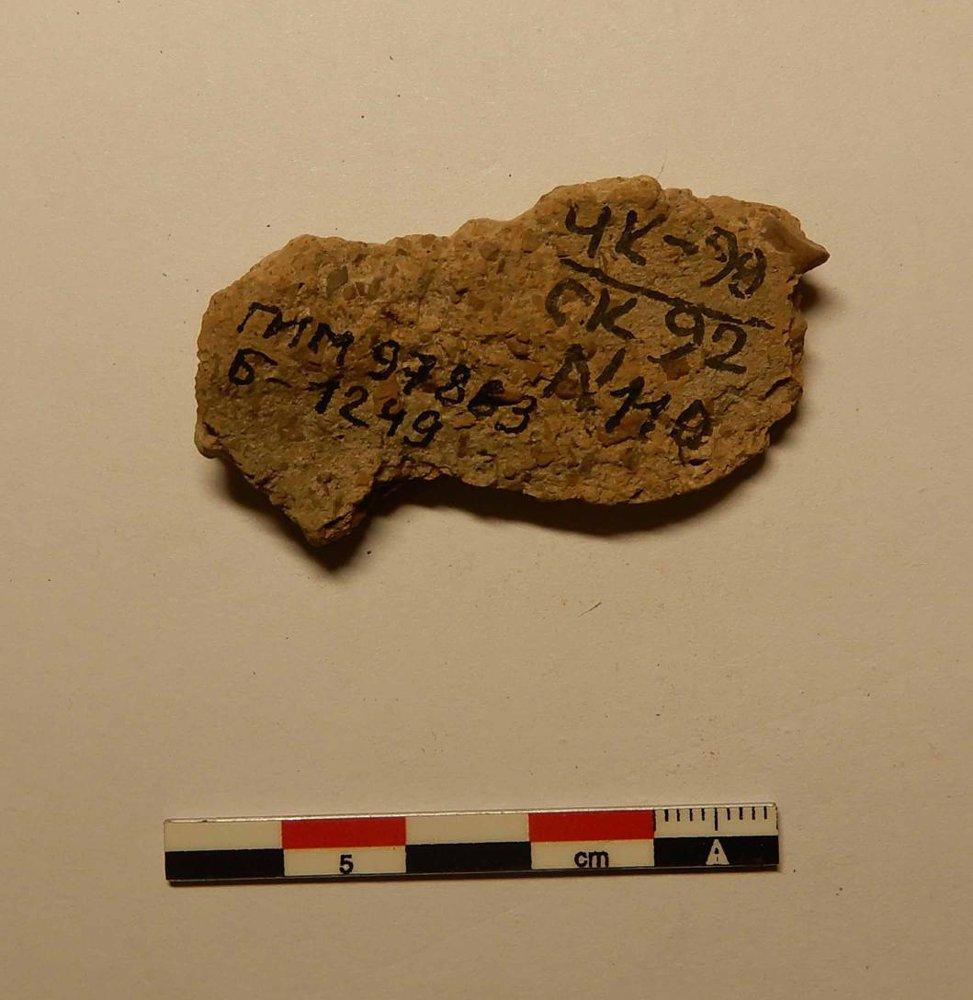 ЧК-90
СК 92
Л'110
ГИМ 97863
Б-1249
5 cm A